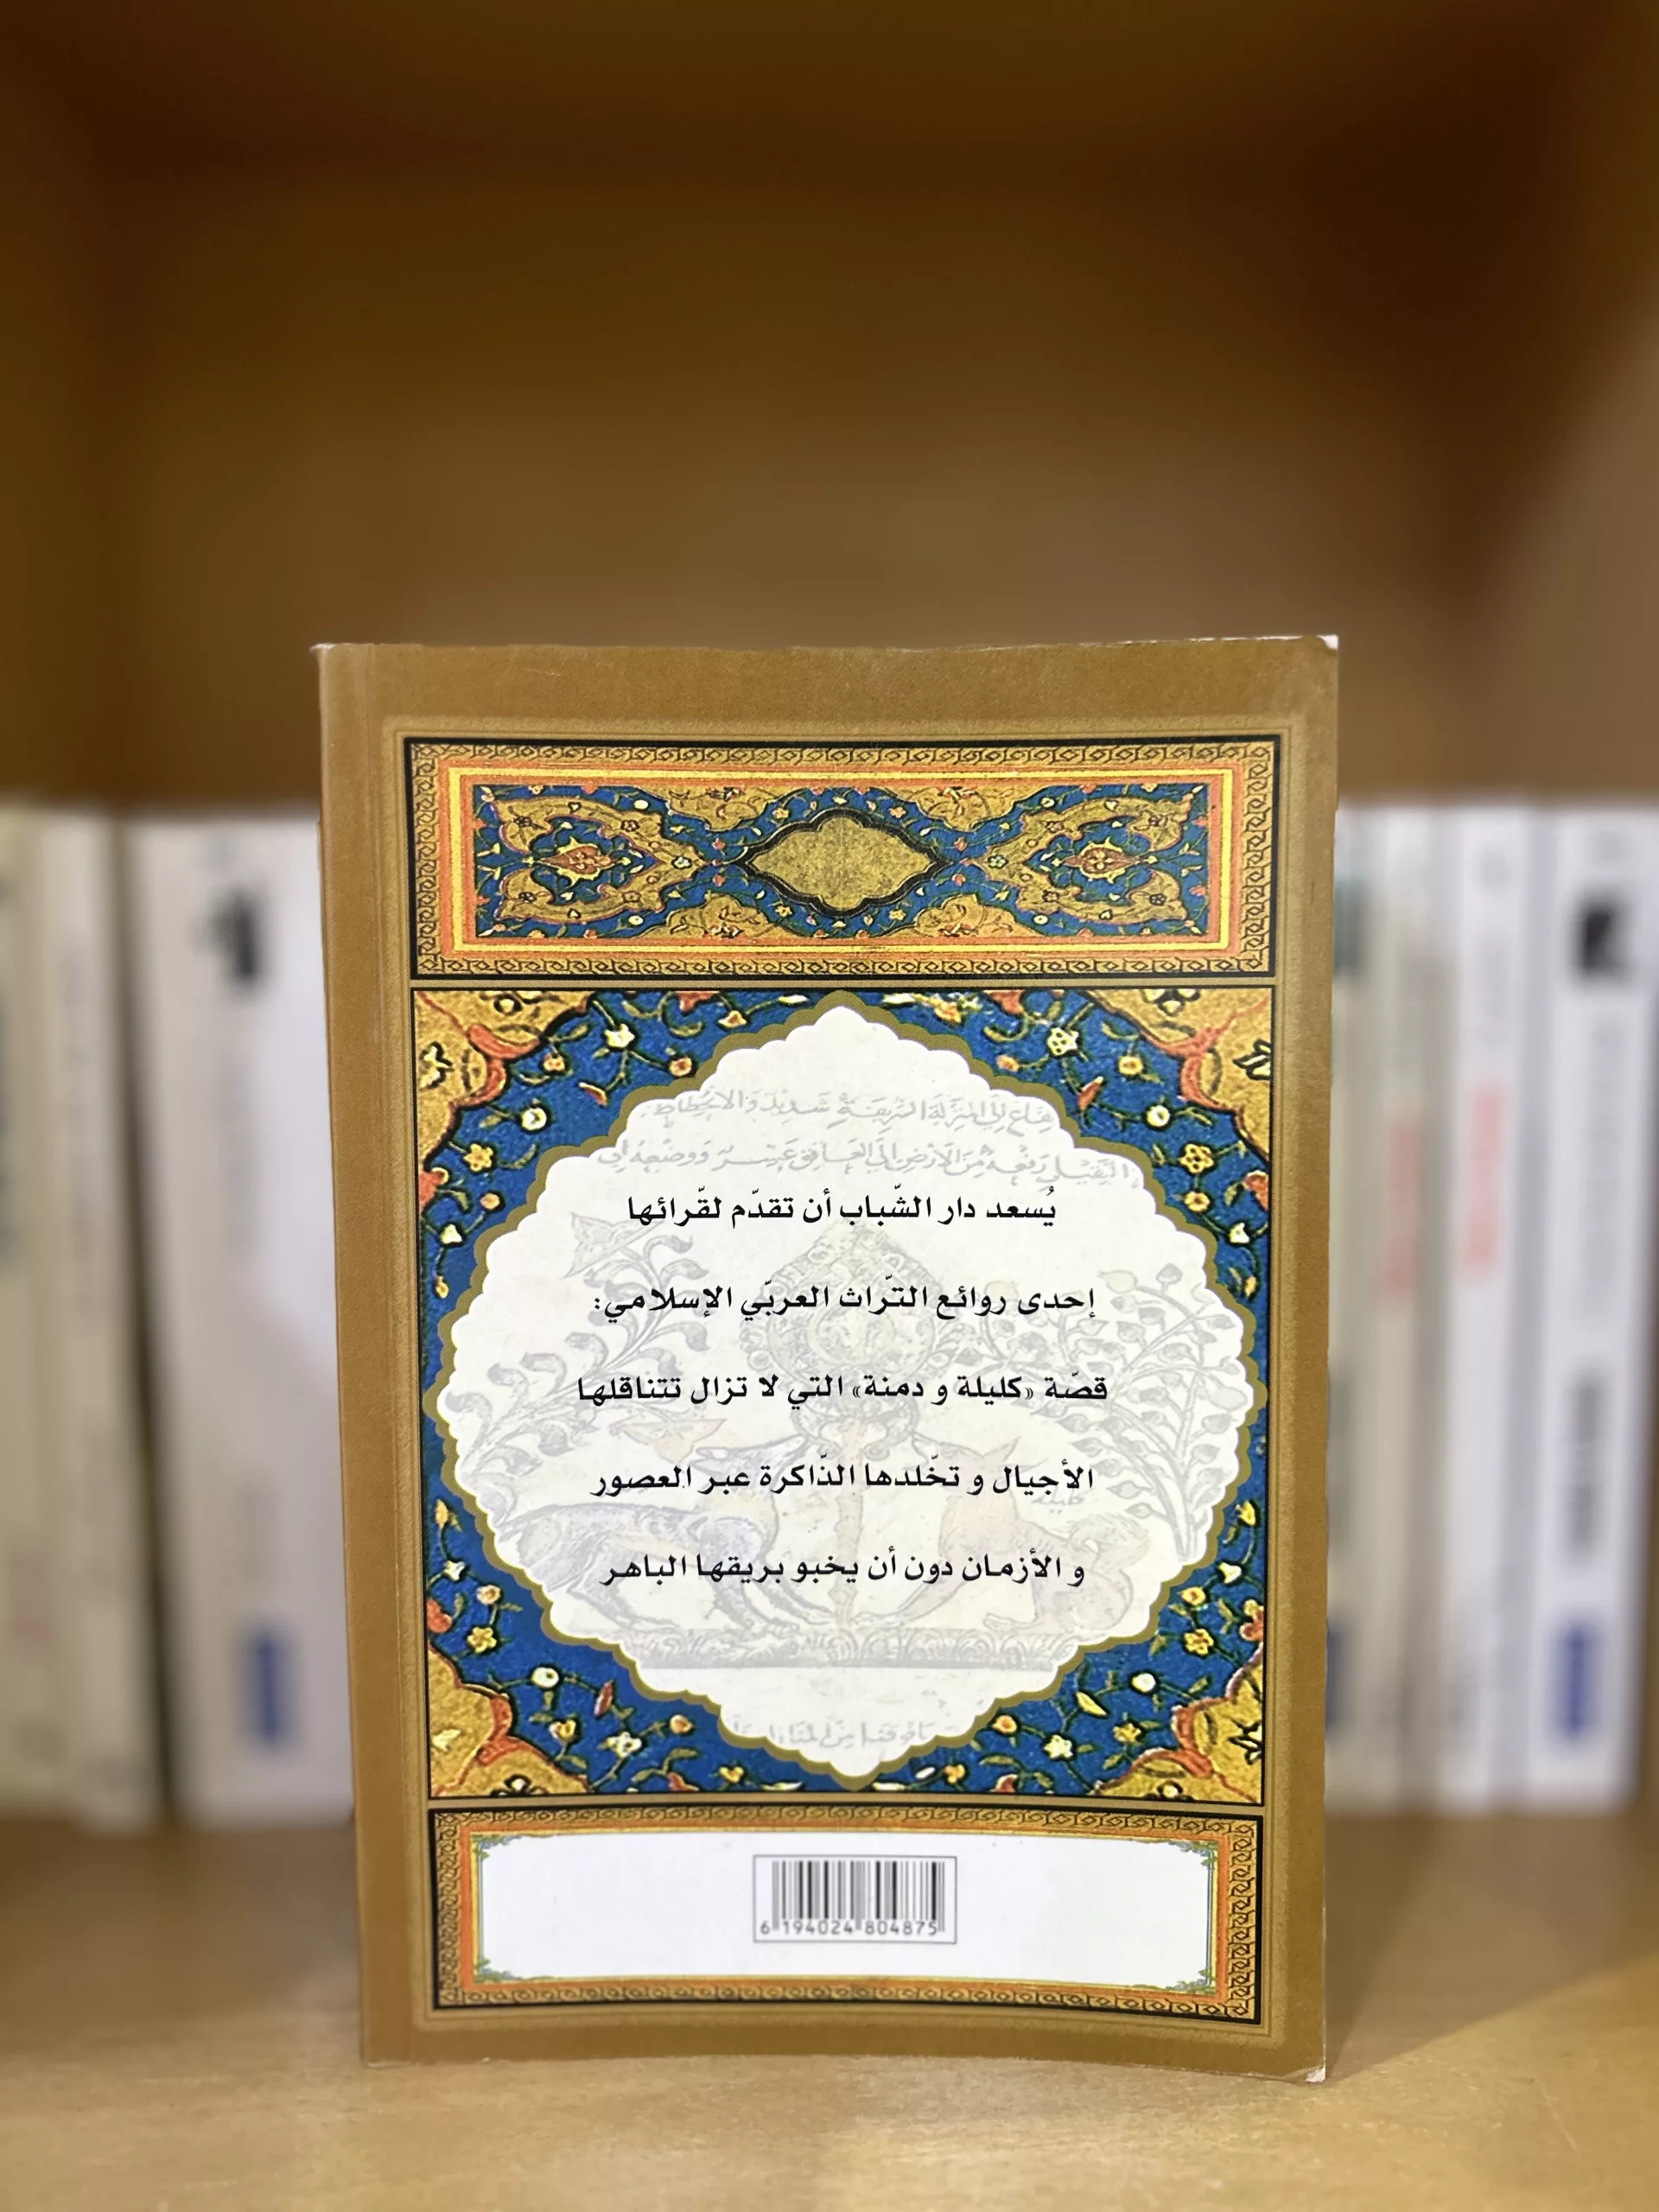 يُسعد دار الشّباب أن تقدّم لقّرائها
إحدى روائع التّراث العربّي الإسلامي:
قصّة «كليلة و دمنة» التي لا تزال تتناقلها
الأجيال و تخّلدها الذّاكرة عبر العصور
و الأزمان دون أن يخبو بريقها الباهر
6 194024 804875